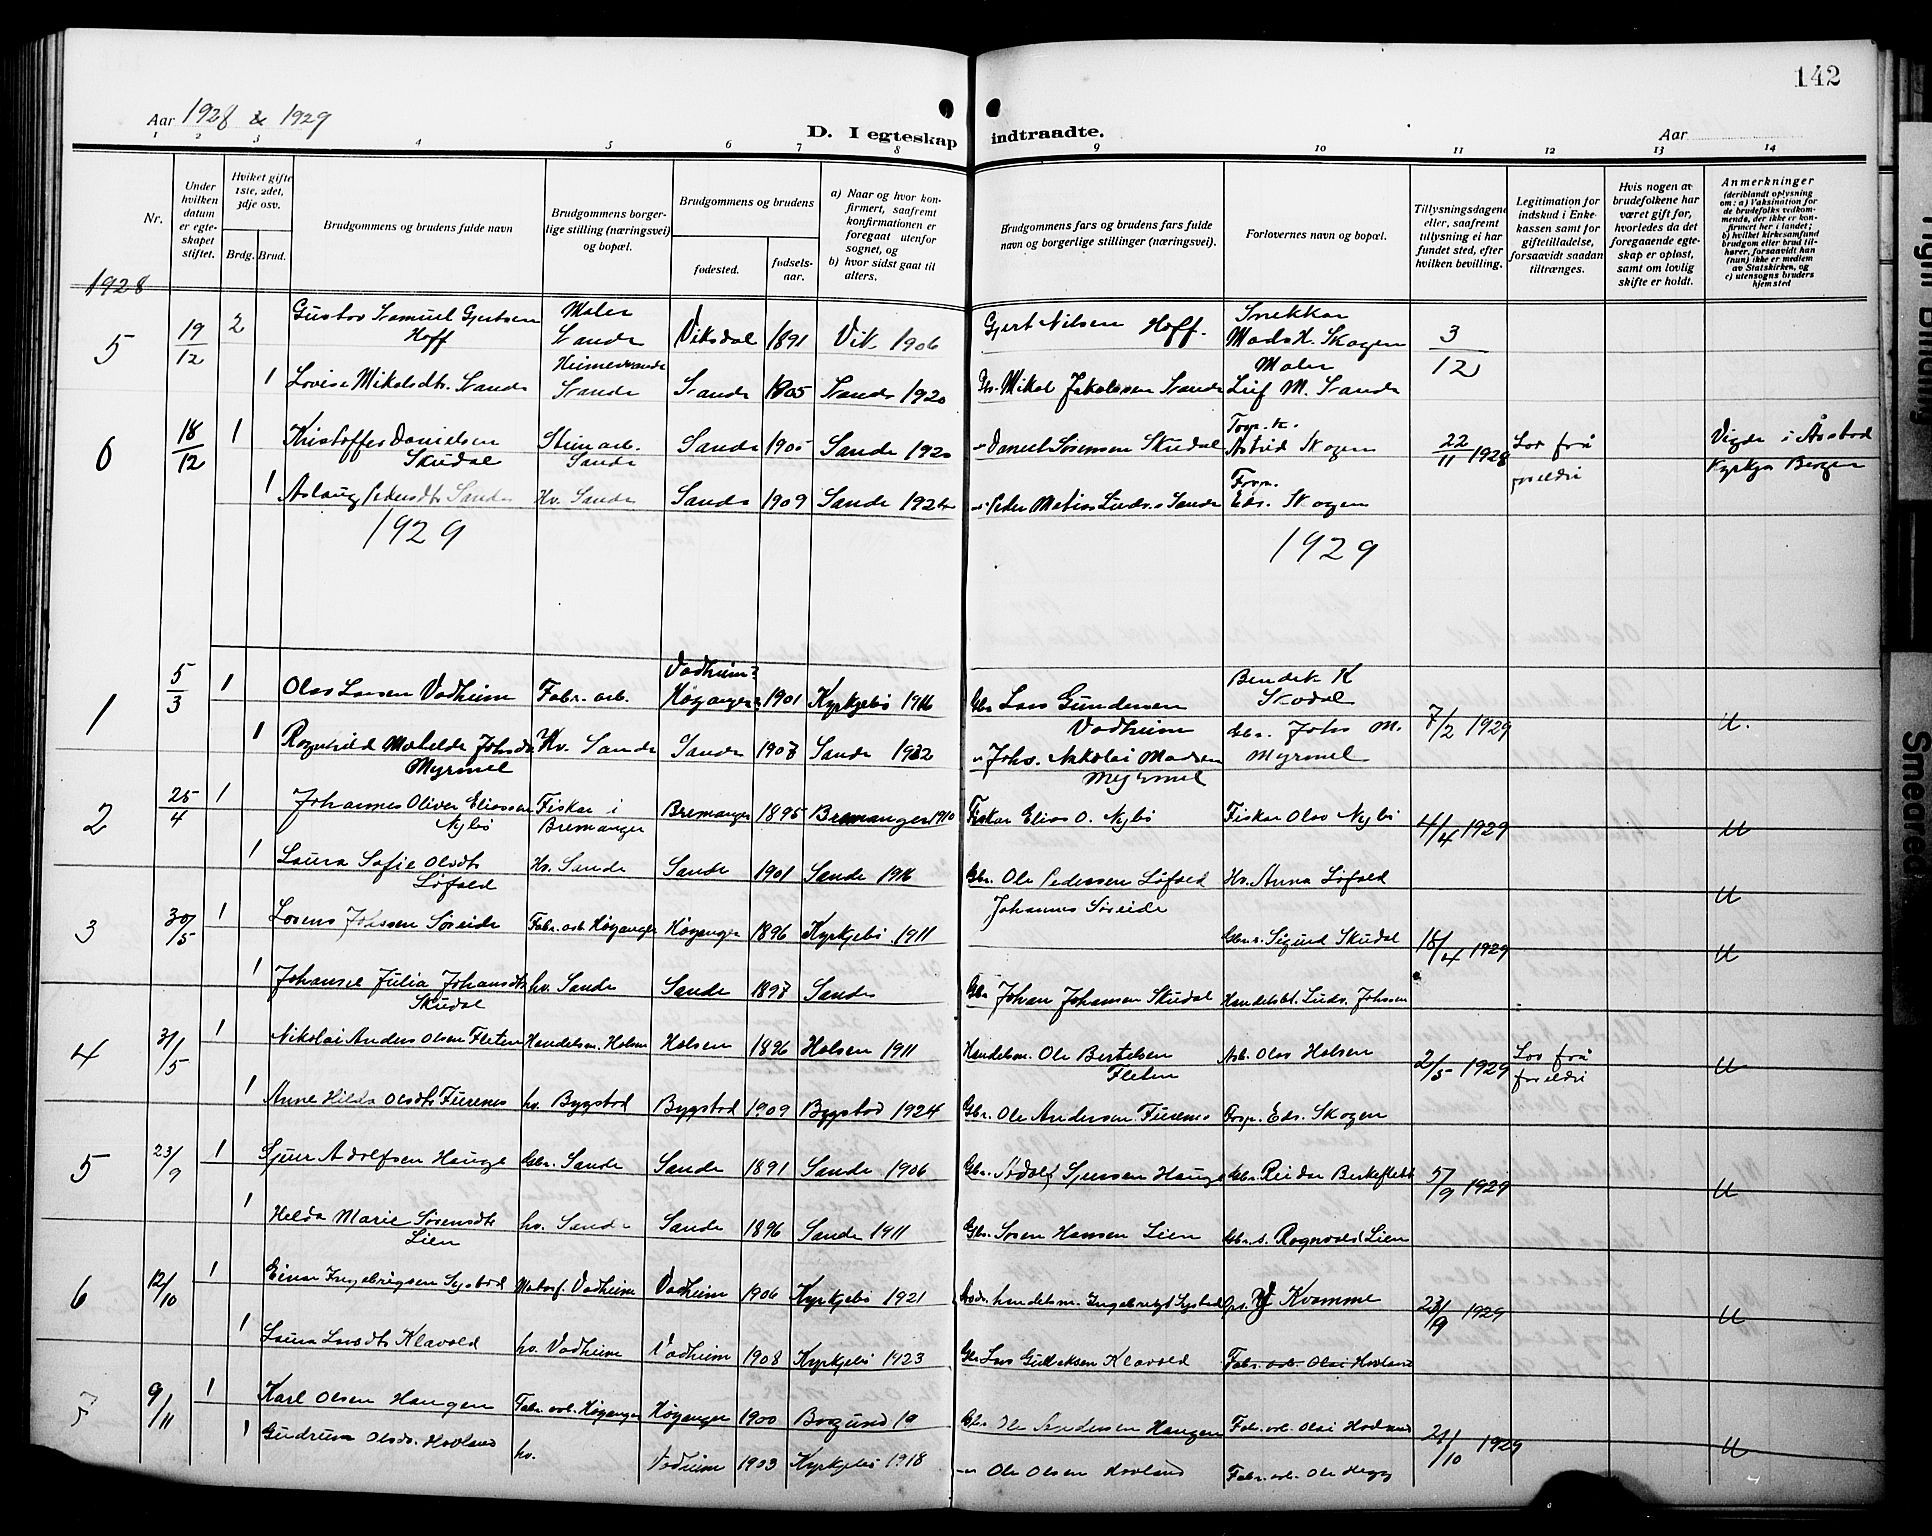 142
Aar 1928 & 1929
D. I egteskap indtraadte.
Aar
1 2 3 4 5 6 7 8 9 10 11 12 13 14
Nr.
Under hvilken datum er egteskapet stiftet.
Hvilket gifte 1ste, 2det, 3dje osv.
Brdg. Brud.
Brudgommens og brudens fulde navn
Brudgommens borgerlige stilling (næringsvei) og bopæl.
Brudgommens og brudens
fødested.
fødselsaar.
a) Naar og hvor konfirmert, saafremt konfirmationen er foregaat utenfor sognet, og
b) hvor sidst gaat til alters.
Brudgommens fars og brudens fars fulde navn og borgerlige stillinger (næringsvei).
Forlovernes navn og bopæl.
Tillysningsdagene eller, saafremt tillysning ei har fundet sted, efter hvilken bevilling.
Legitimation for indskud i Enkekassen samt for giftetilladelse, forsaavidt saadan tiltrænges.
Hvis nogen av brudefolkene har været gift før, hvorledes da det foregaaende egteskap er opløst, samt om lovlig skifte er holdt.
Anmerkninger
(deriblandt oplysning om: a) Vaksination for de brudefolks vedkommende, der ikke er konfirmert her i landet; b) hvilket kirkesamfund brudgom eller brud tilhører, forsaavidt han (hun) ikke er medlem av Statskirken, og c) utensogns bruders hjemsted
1928
5 19/12 2 Gustav Samuel Gjertsen Hoff Maler Sande Viksdal 1891 Vik 1906 Gjert Nilsen Hoff. Snekkar Mads H. Skogen 3/12
1 Lovise Mikalsdtr. Sande Heimeverande Sande Sande 1905 Sande 1920 Gbr. Mikal Jakobsen Sande Maler Leif M. Sande
6 18/12 1 Kristoffer Danielsen Skudal Steinarb. Sande Sande 1905 Sande 1920 " Daniel Sørensen Skudal Astrid Skogen 22/11 1928 Lov frå foreldri Vigde i Årstad Kyrkja Bergen
1 Aslaug Pedersdtr Sande Hv. Sande Sande 1909 Sande 192 " Peder Matias Ludv.s Sande Edv. Skogen
1929 1929
1 5/3 1 Olav Larsen Vadheim Fabr. arb. Vadheim? Høyanger? 1901 Kyrkjebø 1916 Gbr Lars Gundersen Vadheim Bendik K Skodal 7/2 1929 U.
1 Ragnhild Mathilde Johsdtr Myrmel Hv. Sande Sande 1907 Sande 1922 " Johs. Nikolai Madsen Myrmel Gbr. Johs M. Myrmel
2 25/4 1 Johannes Oliver Eliassen Nybø Fiskar i Bremanger Bremanger 1895 Bremanger 1910 Fiskar Elias O. Nybø Fiskar Olav Nybø 4/4 1929 U
1 Laura Sofie Olsdtr Løfald Hv. Sande Sande 1901 Sande 1916 Gbr. Ole Pedersen Løfald Hv. Anna Løfald U
3 30/5 1 Lorens Johssen Søreide Fabr. arb Høyanger Høyanger 1896 Kyrkjebø 1911 Johannes Søreide Gbr.s. Sigurd Skudal 18/4 1929 U
1 Johanne Julia Johansdtr Skudal hv. Sande Sande 1897 Sande Gbr Johan Johansen Skudal Handelsbt. Ludv. Johssen
4 31/5 1 Nikolai Anders Olsen Fleten Handelsm. Holsen Holsen 1896 Holsen 1911 Handelsm. Ole Bertelsen Fleten Arb. Olav Holsen 2/5 1929 Lov frå foreldri U
1 Anne Hilda Olsdtr Furenes hv. Bygstad Bygstad 1909 Bygstad 1924 Gbr. Ole Andersen Furenes Edv. Skogen
5 23/9 1 Sjur Adolfsen Hauge Gbr. Sande Sande 1891 Sande 1906 Gbr. Adolf Sjursen Hauge Gbr. Reidar Birkeflet 5/9 1929 U
1 Helda Marie Sørensdtr Lien hv. Sande Sande 1896 Sande 1911 Gbr. Søren Hansen Lien Gbr. s. Ragnvald Lien
6 12/10 1 Einar Ingebrigtsen Systad Vadheim Vadheim 1906 Kyrkjebø 1921 handelsm. Ingebrigt Systad Kvamme 23/9 1929 U
1 Laura Larsdtr Klævold hv. Vadheim Vadheim 1908 Kyrkjebø 1923 Gbr Lars Gulleksen Klævold Fabr. arb. Olai Hovland
7 9/11 1 Karl Olsen Haugen Fabr. arb. Høyanger Høyanger 1900 Borgund 19 Gbr. Ole Andersen Haugen Fabr. arb Olai Hovland 21/10 1929 U
1 Gudrun Olsdtr. Hovland hv. Vadheim 1903 Kyrkjebø 1918 " Ole Olsen Hovland Fabr. arb. Ole
Tight Binding
Smeared